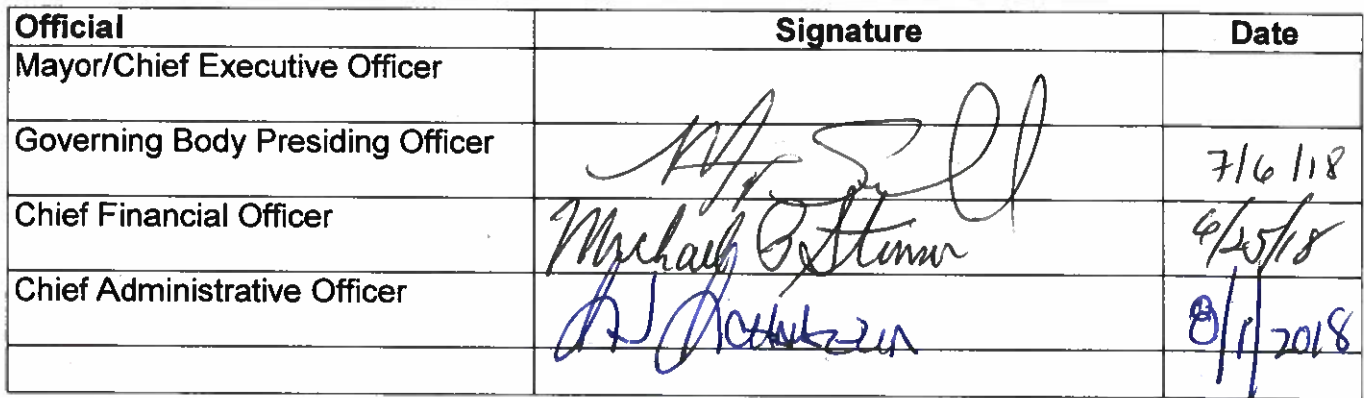 Official Signature Date
Mayor/Chief Executive Officer
Governing Body Presiding Officer 7/6/18
Chief Financial Officer Michael 6/25/18
Chief Administrative Officer 8/1/2018